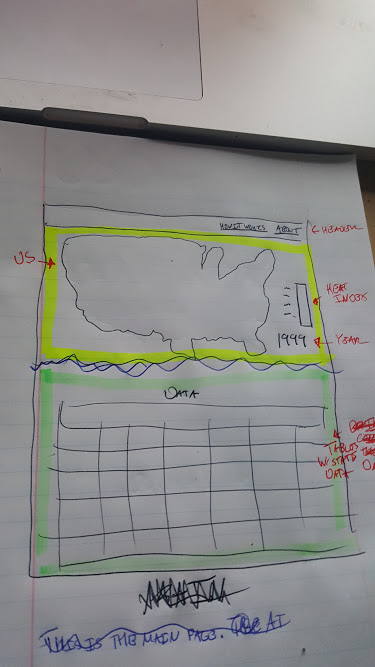 HOW IT WORKS ABOUT
HEADER
US
HEAT
INDEX
1999
YEAR
DATA
TABLES
W/ STATE
DATA
THIS IS THE MAIN PAGE.